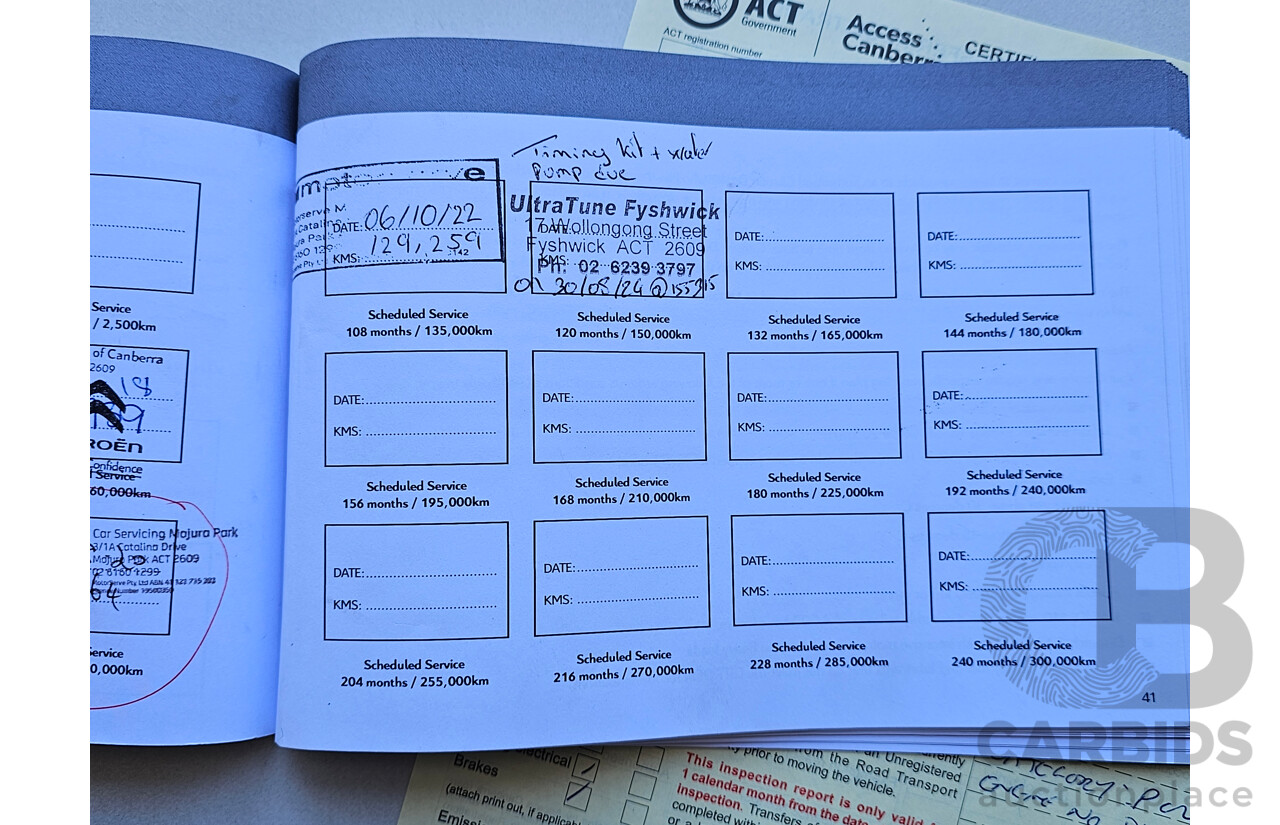 ACT
Government
ACT registration number
Access
CERTIFI
Timing kit + water
Pump due
e
DATE: 06/10/22
KMS: 129,259
142
UltraTune Fyshwick
17 Wollongong Street
Fyshwick ACT 2609
Ph: 02 6239 3797
on 30/08/24 @155915
DATE:
KMS:
DATE:
KMS:
Scheduled Service
108 months / 135,000km
Scheduled Service
120 months / 150,000km
Scheduled Service
132 months / 165,000km
Scheduled Service
144 months / 180,000km
DATE:
KMS:
DATE:
KMS:
DATE:
KMS:
DATE:
KMS:
Scheduled Service
156 months / 195,000km
Scheduled Service
168 months / 210,000km
Scheduled Service
180 months / 225,000km
Scheduled Service
192 months / 240,000km
DATE:
KMS:
DATE:
KMS:
DATE:
KMS:
DATE:
KMS:
Scheduled Service
204 months / 255,000km
Scheduled Service
216 months / 270,000km
Scheduled Service
228 months / 285,000km
Scheduled Service
240 months / 300,000km
41
Service
/ 2,500km
of Canberra
2609
18
ROËN
onfidence
Service
60,000km
Car Servicing Majura Park
3/1A Catalina Drive
Majura Park ACT 2609
ervice
0,000km
Brakes
(attach print out, if applicab
Emissi
ty prior to moving the vehicle.
from the Road Transport
an Unregistered
This inspection report is only valid
1 calendar month from the date
inspection. Transfers
completed within
CARBIDS
auctionplace